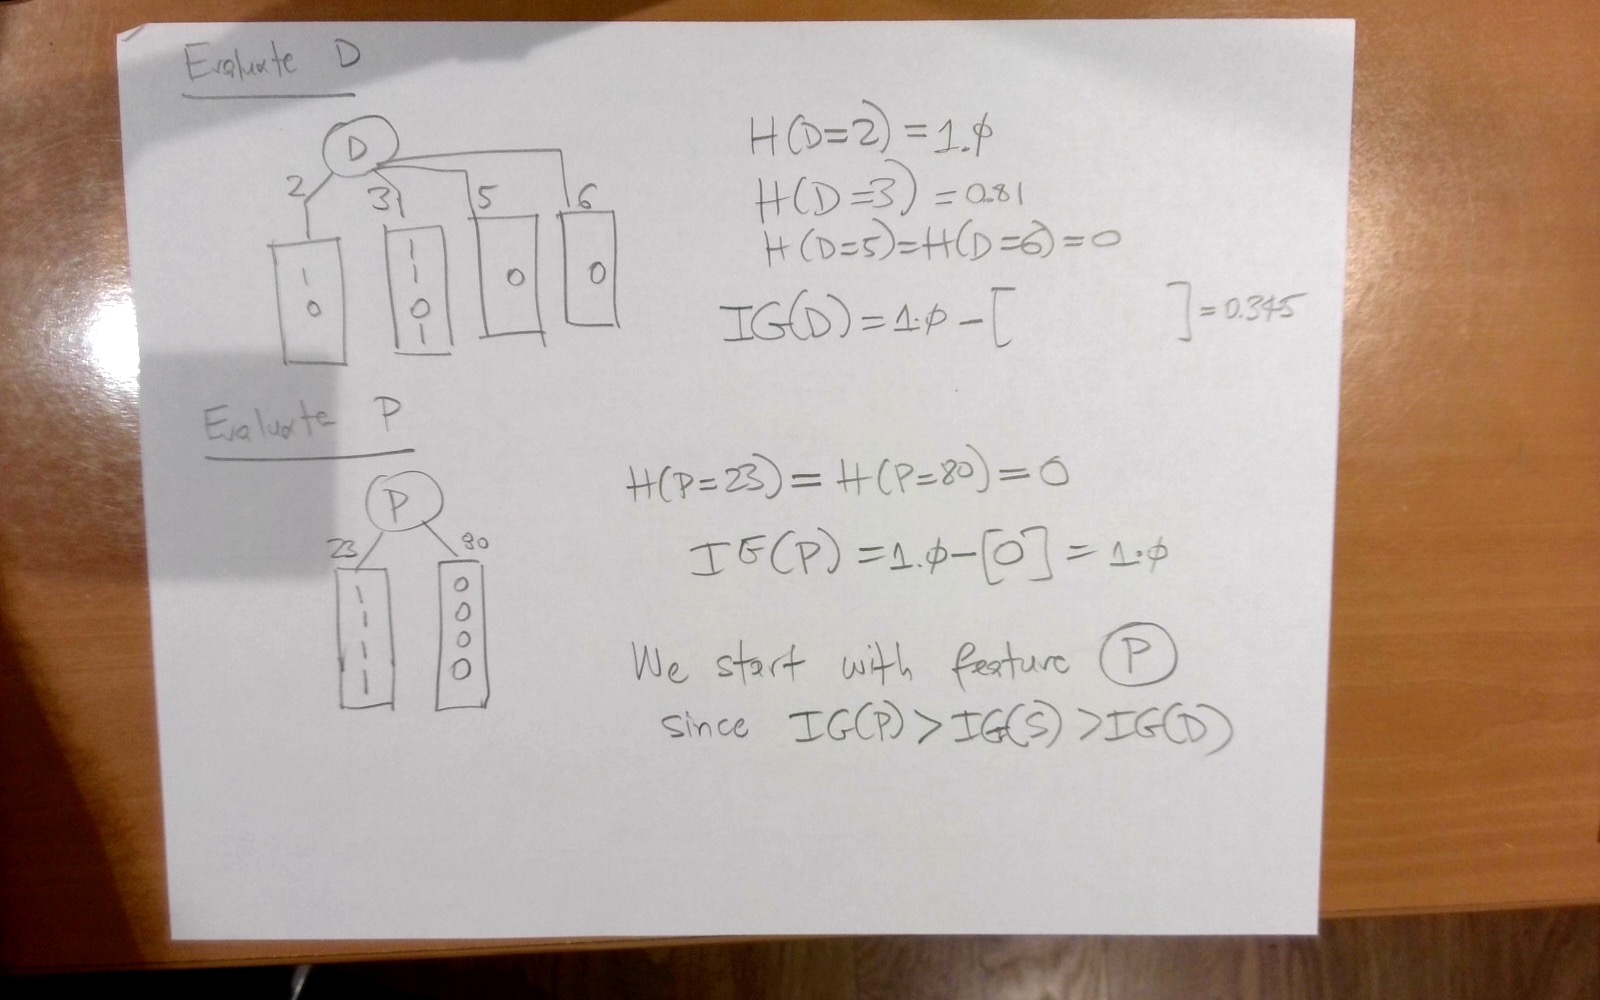 Evaluate D
D
2 3 5 6
1 1 0 0
0 1
0
1
H(D=2) = 1.0
H(D=3) = 0.81
H(D=5)=H(D=6)=0
IG(D) = 1.0 - [ ] = 0.345
Evaluate P
P
23 80
1 0
1 0
1 0
1 0
H(P=23) = H(P=80) = 0
IG(P) = 1.0-[0] = 1.0
We start with feature P
since IG(P) > IG(S) > IG(D)